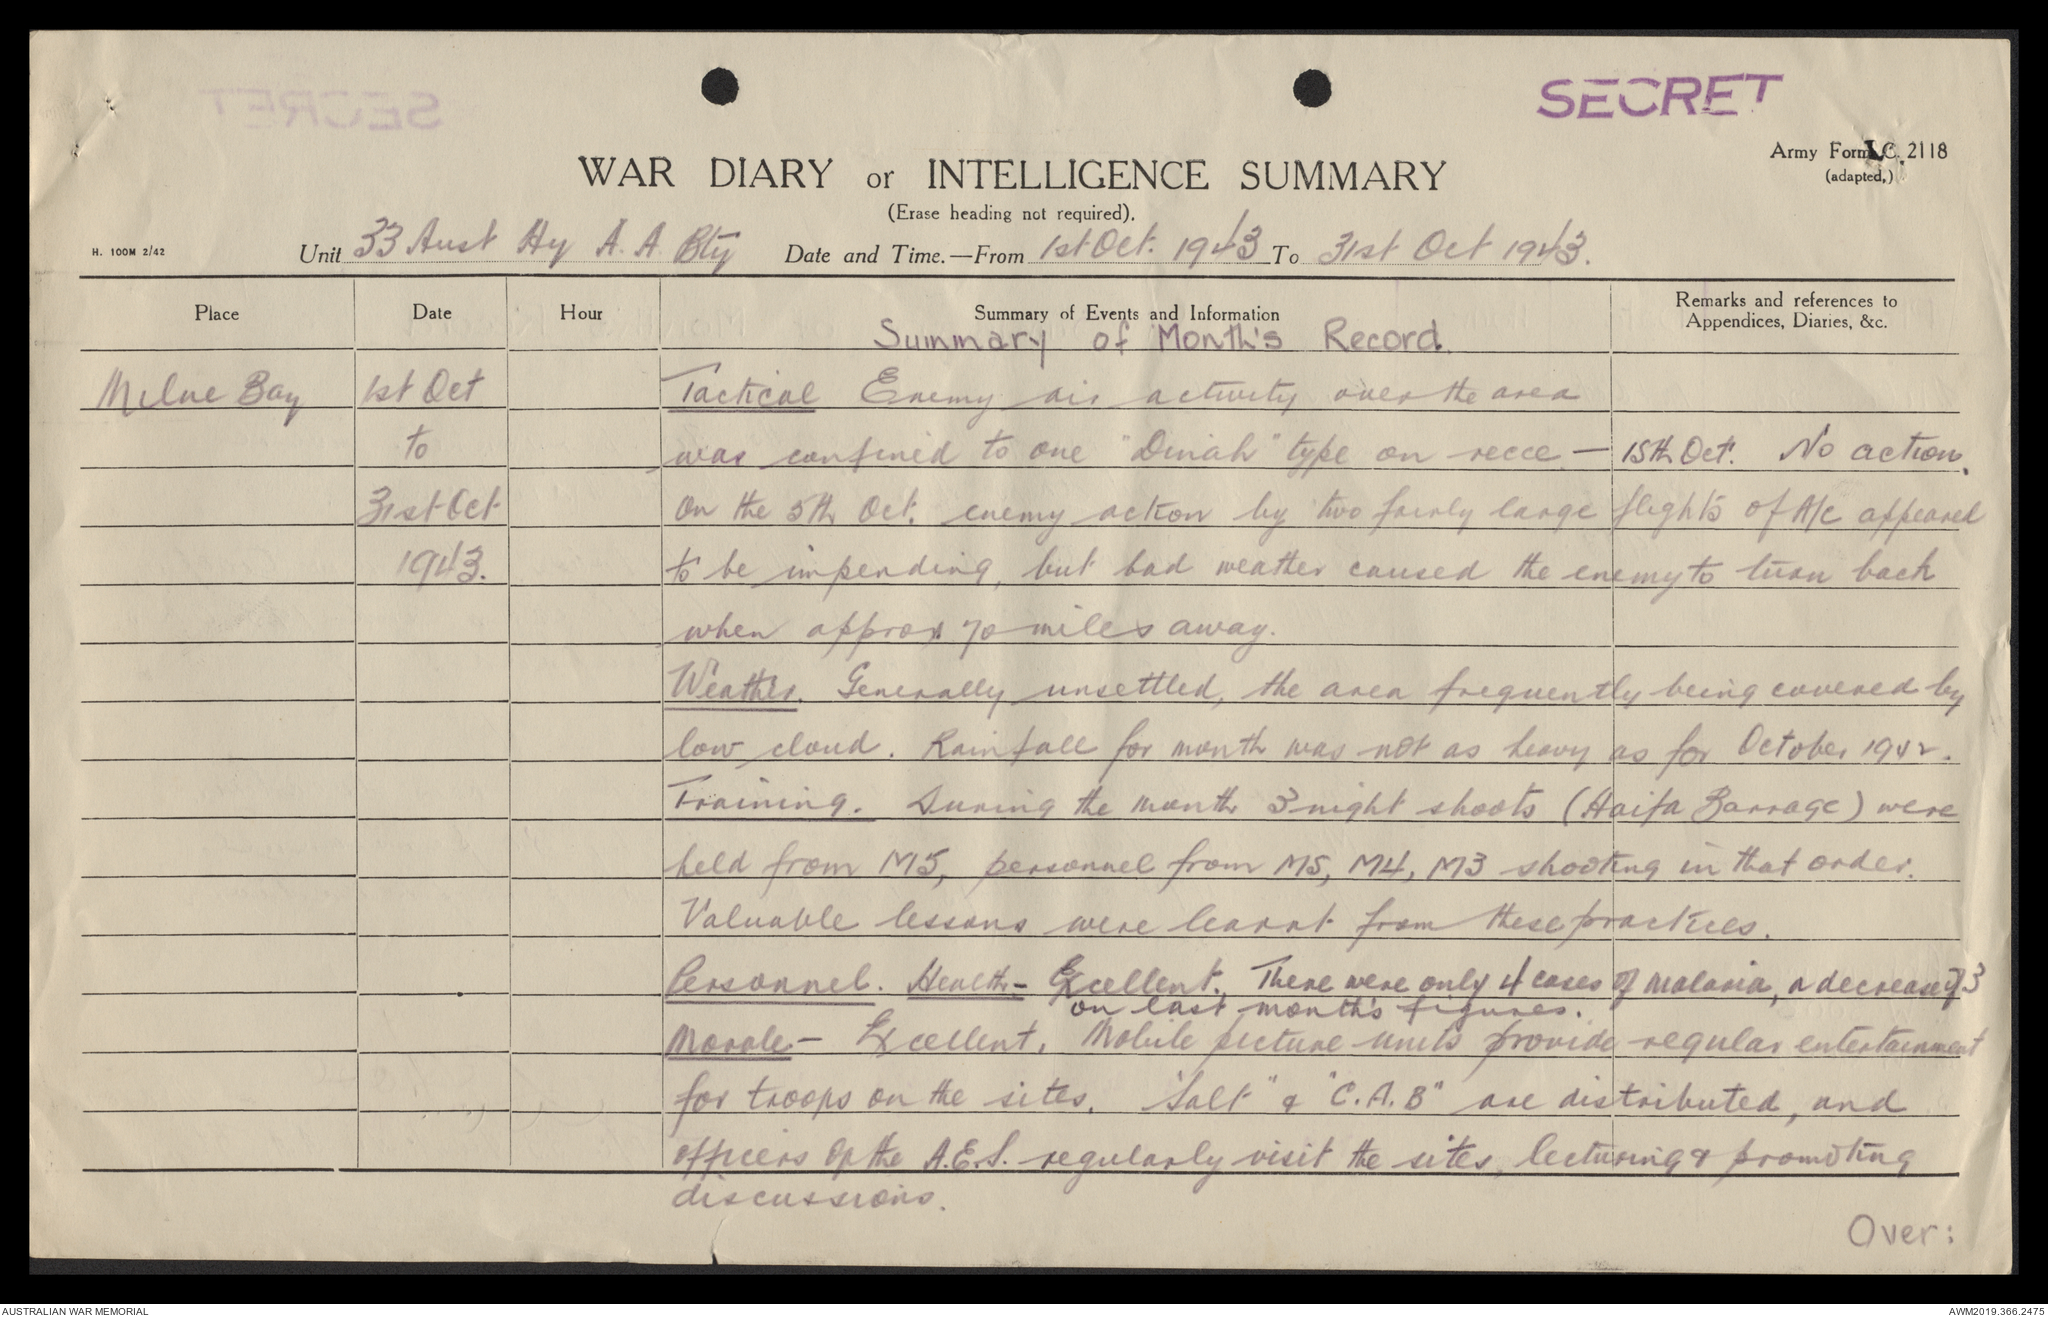 SECRET
Army Form C. 2118
(adapted.)
WAR DIARY or INTELLIGENCE SUMMARY
(Erase heading not required).
H. 100M 2/42
Unit 33 Aust Hy A.A. Bty Date and Time.—From 1st Oct. 1943 To 31st Oct 1943.
Place Date Hour Summary of Events and Information Remarks and references to Appendices, Diaries, &c.
Summary of Month's Record.
Milne Bay 1st Oct Tactical Enemy air activity over the area
to was confined to one "Dinah" type on recce — 15th Oct. No action.
31st Oct On the 5th Oct. enemy action by two fairly large flights of A/c appeared
1943. to be impending, but bad weather caused the enemy to turn back
when approx 70 miles away.
Weather. Generally unsettled, the area frequently being covered by
low cloud. Rainfall for month was not as heavy as for October 1942.
Training. During the month 3 night shoots (Haifa Barrage) were
held from M5, personnel from M5, M4, M3 shooting in that order.
Valuable lessons were learnt from these practices.
Personnel. Health - Excellent. There were only 4 cases of malaria, a decrease of 3
on last month's figures.
Morale - Excellent. Mobile picture units provide regular entertainment
for troops on the sites. "Salt" & "C.A.B" are distributed, and
officers of the A.E.S. regularly visit the sites, lecturing & promoting
discussions.
Over:
AUSTRALIAN WAR MEMORIAL
AWM2019.366.2475